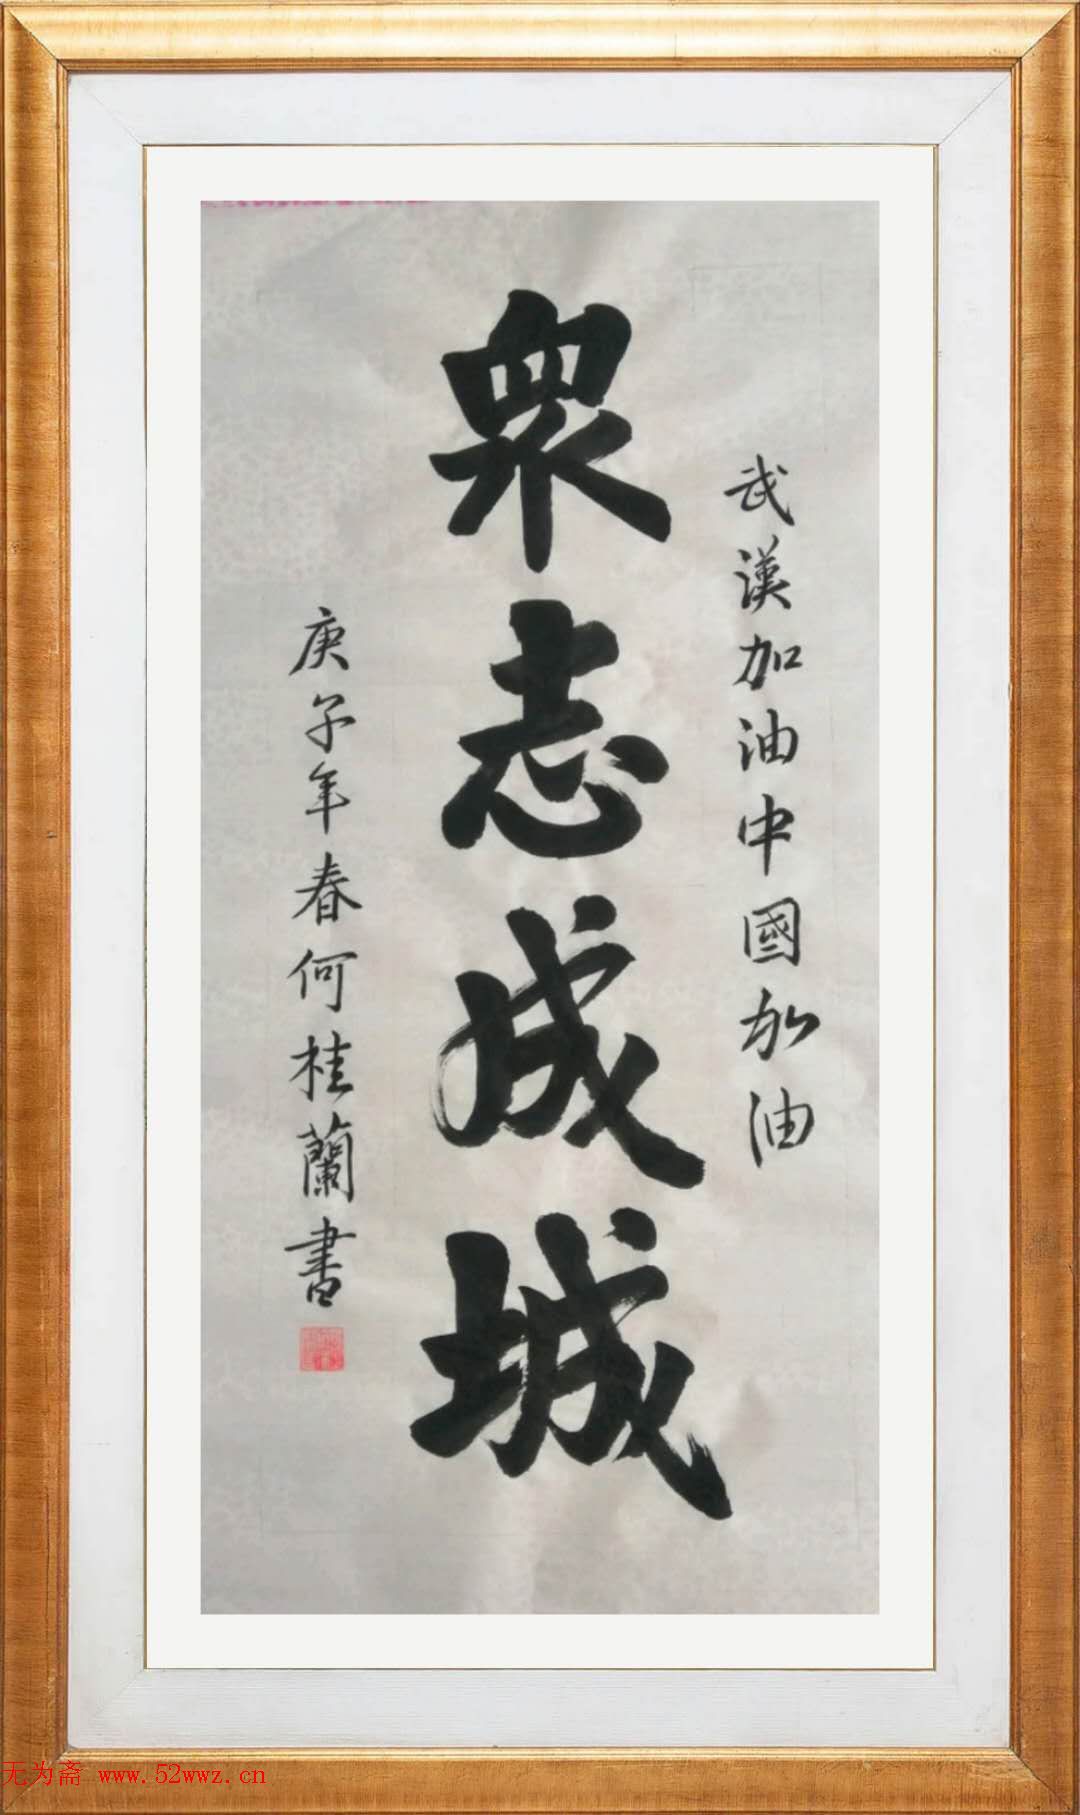 武漢加油中國加油
眾志成城
庚子年春何桂蘭書
无为斋 www.52wwz.cn